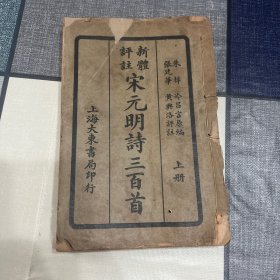 朱梓 冷昌言原編
張廷華 黃興洛評註
上册
新體
評註
宋元明詩三百首
上海大東書局印行